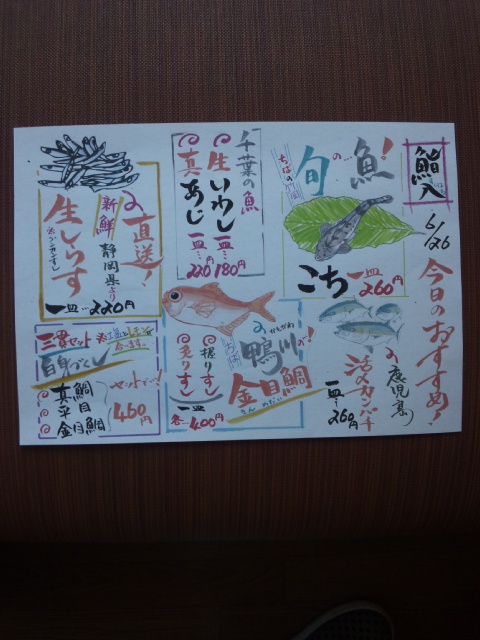 6/26 今日のおすすめ!
旬の…魚!
こち 一皿…260円
鹿児島の
活〆カンパチ
一皿…260円
千葉の魚
生いわし 一皿…180円
真あじ 一皿…220円
鴨川の!
かもがわ
金目鯛
きんめだい
握りすし
炙りすし
一皿
各…400円
直送!
静岡県より
新鮮
生しらす
一皿…220円
三貫セット
白身づくし
真鯛
平目
金目鯛
セットで…!
460円